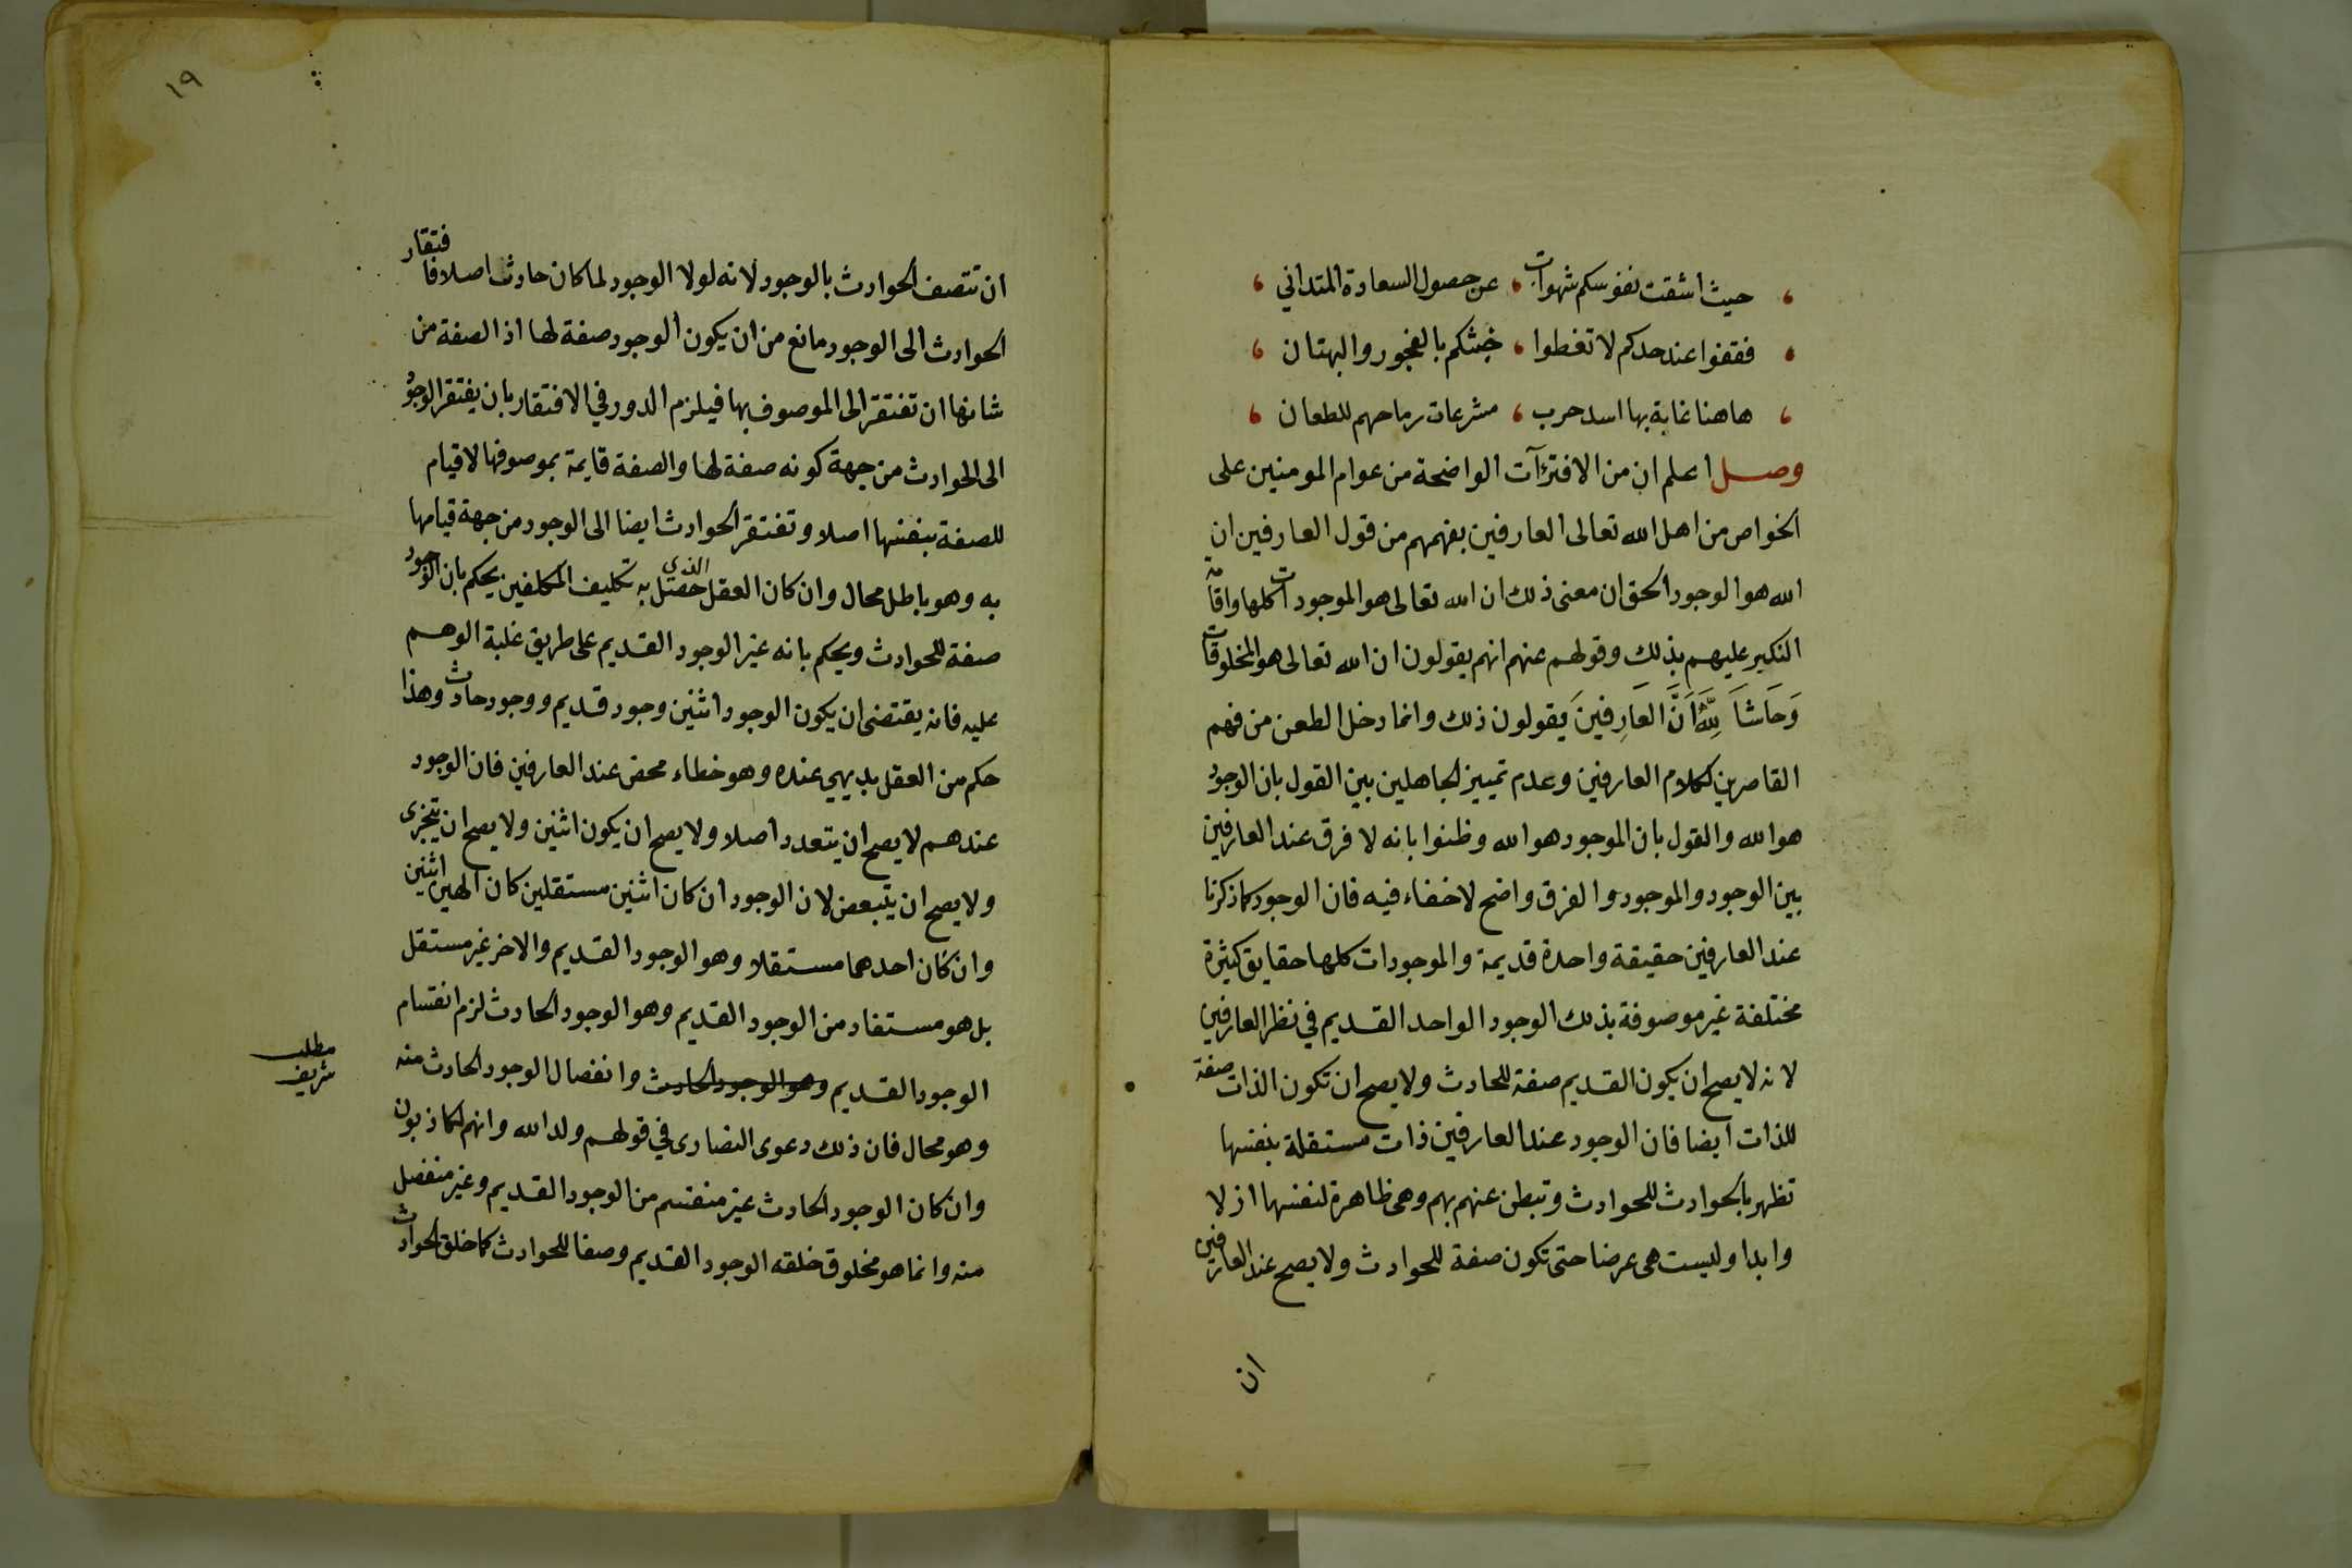 حيث اشقت نفوسكم شهوات ، عن حصول السعادة المتداني ،
فقفوا عند حدكم لا تغطوا ، خبثكم بالفجور والبهتان ،
هاهنا غابة بها اسد حرب ، مشرعات رماحهم للطعان ،
وصل اعلم ان من الافتراآت الواضحة من عوام المومنين على
الخواص من اهل الله تعالى العارفين بفهمهم من قول العارفين ان
الله هو الوجود الحق ان معنى ذلك ان الله تعالى هو الموجودات كلها واقامة
النكير عليهم بذلك وقولهم عنهم انهم يقولون ان الله تعالى هو المخلوقات
وَحَاشَا لِلَّهِ اَنَّ العَارِفينَ يقولون ذلك وانما دخل الطعن من فهم
القاصرين لكلام العارفين وعدم تمييز الجاهلين بين القول بان الوجود
هو الله والقول بان الموجود هو الله وظنوا بانه لا فرق عند العارفين
بين الوجود والموجود والفرق واضح لا خفاء فيه فان الوجود كما ذكرنا
عند العارفين حقيقة واحدة قديمة والموجودات كلها حقايق كثيرة
مختلفة غير موصوفة بذلك الوجود الواحد القديم في نظر العارفين
لانه لا يصح ان يكون القديم صفة للحادث ولا يصح ان تكون الذات صفة
للذات ايضا فان الوجود عند العارفين ذات مستقلة بنفسها
تظهر بالحوادث للحوادث وتبطن عنهم بهم وهى ظاهرة لنفسها ازلا
وابدا وليست هى عرضا حتى تكون صفة للحوادث ولا يصح عند العارفين
ان
١٩
ان تتصف الحوادث بالوجود لانه لولا الوجود لما كان حادث اصلا فافتقار
الحوادث الى الوجود مانع من ان يكون الوجود صفة لها اذ الصفة من
شانها ان تفتقر الى الموصوف بها فيلزم الدور في الافتقار بان يفتقر الوجود
الى الحوادث من جهة كونه صفة لها والصفة قايمة بموصوفها لا قيام
للصفة بنفسها اصلا وتفتقر الحوادث ايضا الى الوجود من جهة قيامها
به وهو باطل محال وان كان العقل الذى حصل به تكليف المكلفين يحكم بان الوجود
صفة للحوادث ويحكم بانه غير الوجود القديم على طريق غلبة الوهم
عليه فانه يقتضى ان يكون الوجود اثنين وجود قديم ووجود حادث وهذا
حكم من العقل بديهي عنده وهو خطاء محض عند العارفين فان الوجود
عندهم لا يصح ان يتعدد اصلا ولا يصح ان يكون اثنين ولا يصح ان يتجزى
ولا يصح ان يتبعض لان الوجود ان كان اثنين مستقلين كان الهين اثنين
وان كان احدهما مستقلا وهو الوجود القديم والاخر غير مستقل
بل هو مستفاد من الوجود القديم وهو الوجود الحادث لزم انقسام
الوجود القديم وهو الوجود الحادث وانفصال الوجود الحادث منه
وهو محال فان ذلك دعوى النصارى في قولهم ولد الله وانهم لكاذبون
وان كان الوجود الحادث غير منقسم من الوجود القديم وغير منفصل
منه وانما هو مخلوق خلقه الوجود القديم وصفا للحوادث كما خلق الحوادث
مطلب
شريف